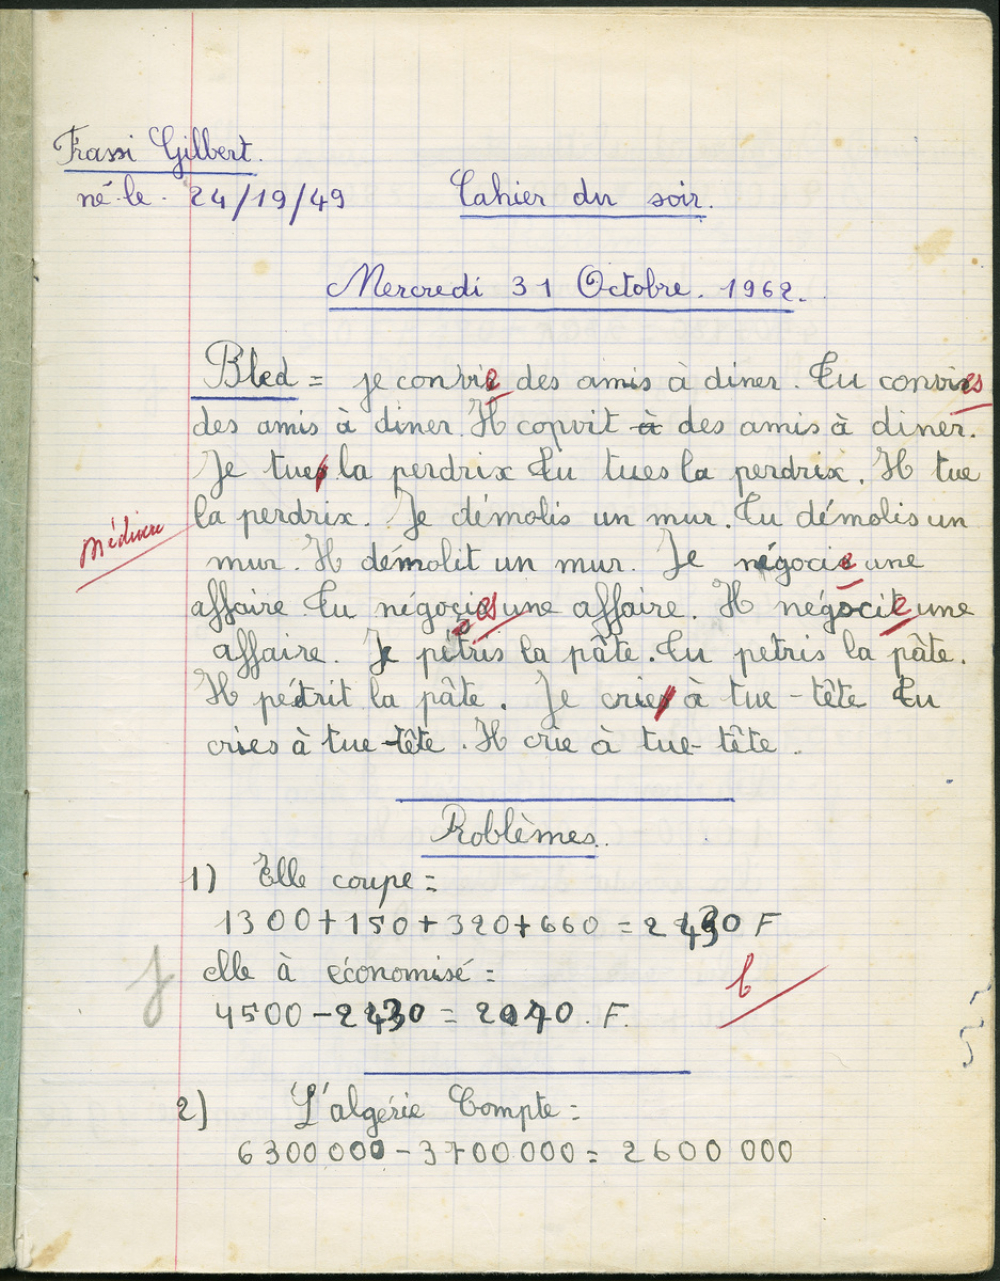 Frassi Gilbert.
né le. 24/19/49
Cahier du soir.
Mercredi 31 Octobre. 1962.
Bled = je convie des amis à diner. Tu convies
des amis à diner. Il convit à des amis à diner.
Je tues la perdrix Tu tues la perdrix. Il tue
la perdrix. Je démolis un mur. Tu démolis un
médiocre
mur. Il démolit un mur. Je négocie une
affaire Tu négocies une affaire. Il négocie une
affaire. Je pétris la pâte. Tu petris la pâte.
Il pétrit la pâte. Je cries à tue-tête Tu
cries à tue-tête. Il crie à tue-tête.
Problèmes.
1) Elle coupe =
1300+150+320+660 = 2430 F
elle à economisé =
4500-2430 = 2070. F.
b
2) L'algérie Compte =
6300000-3700000= 2600 000